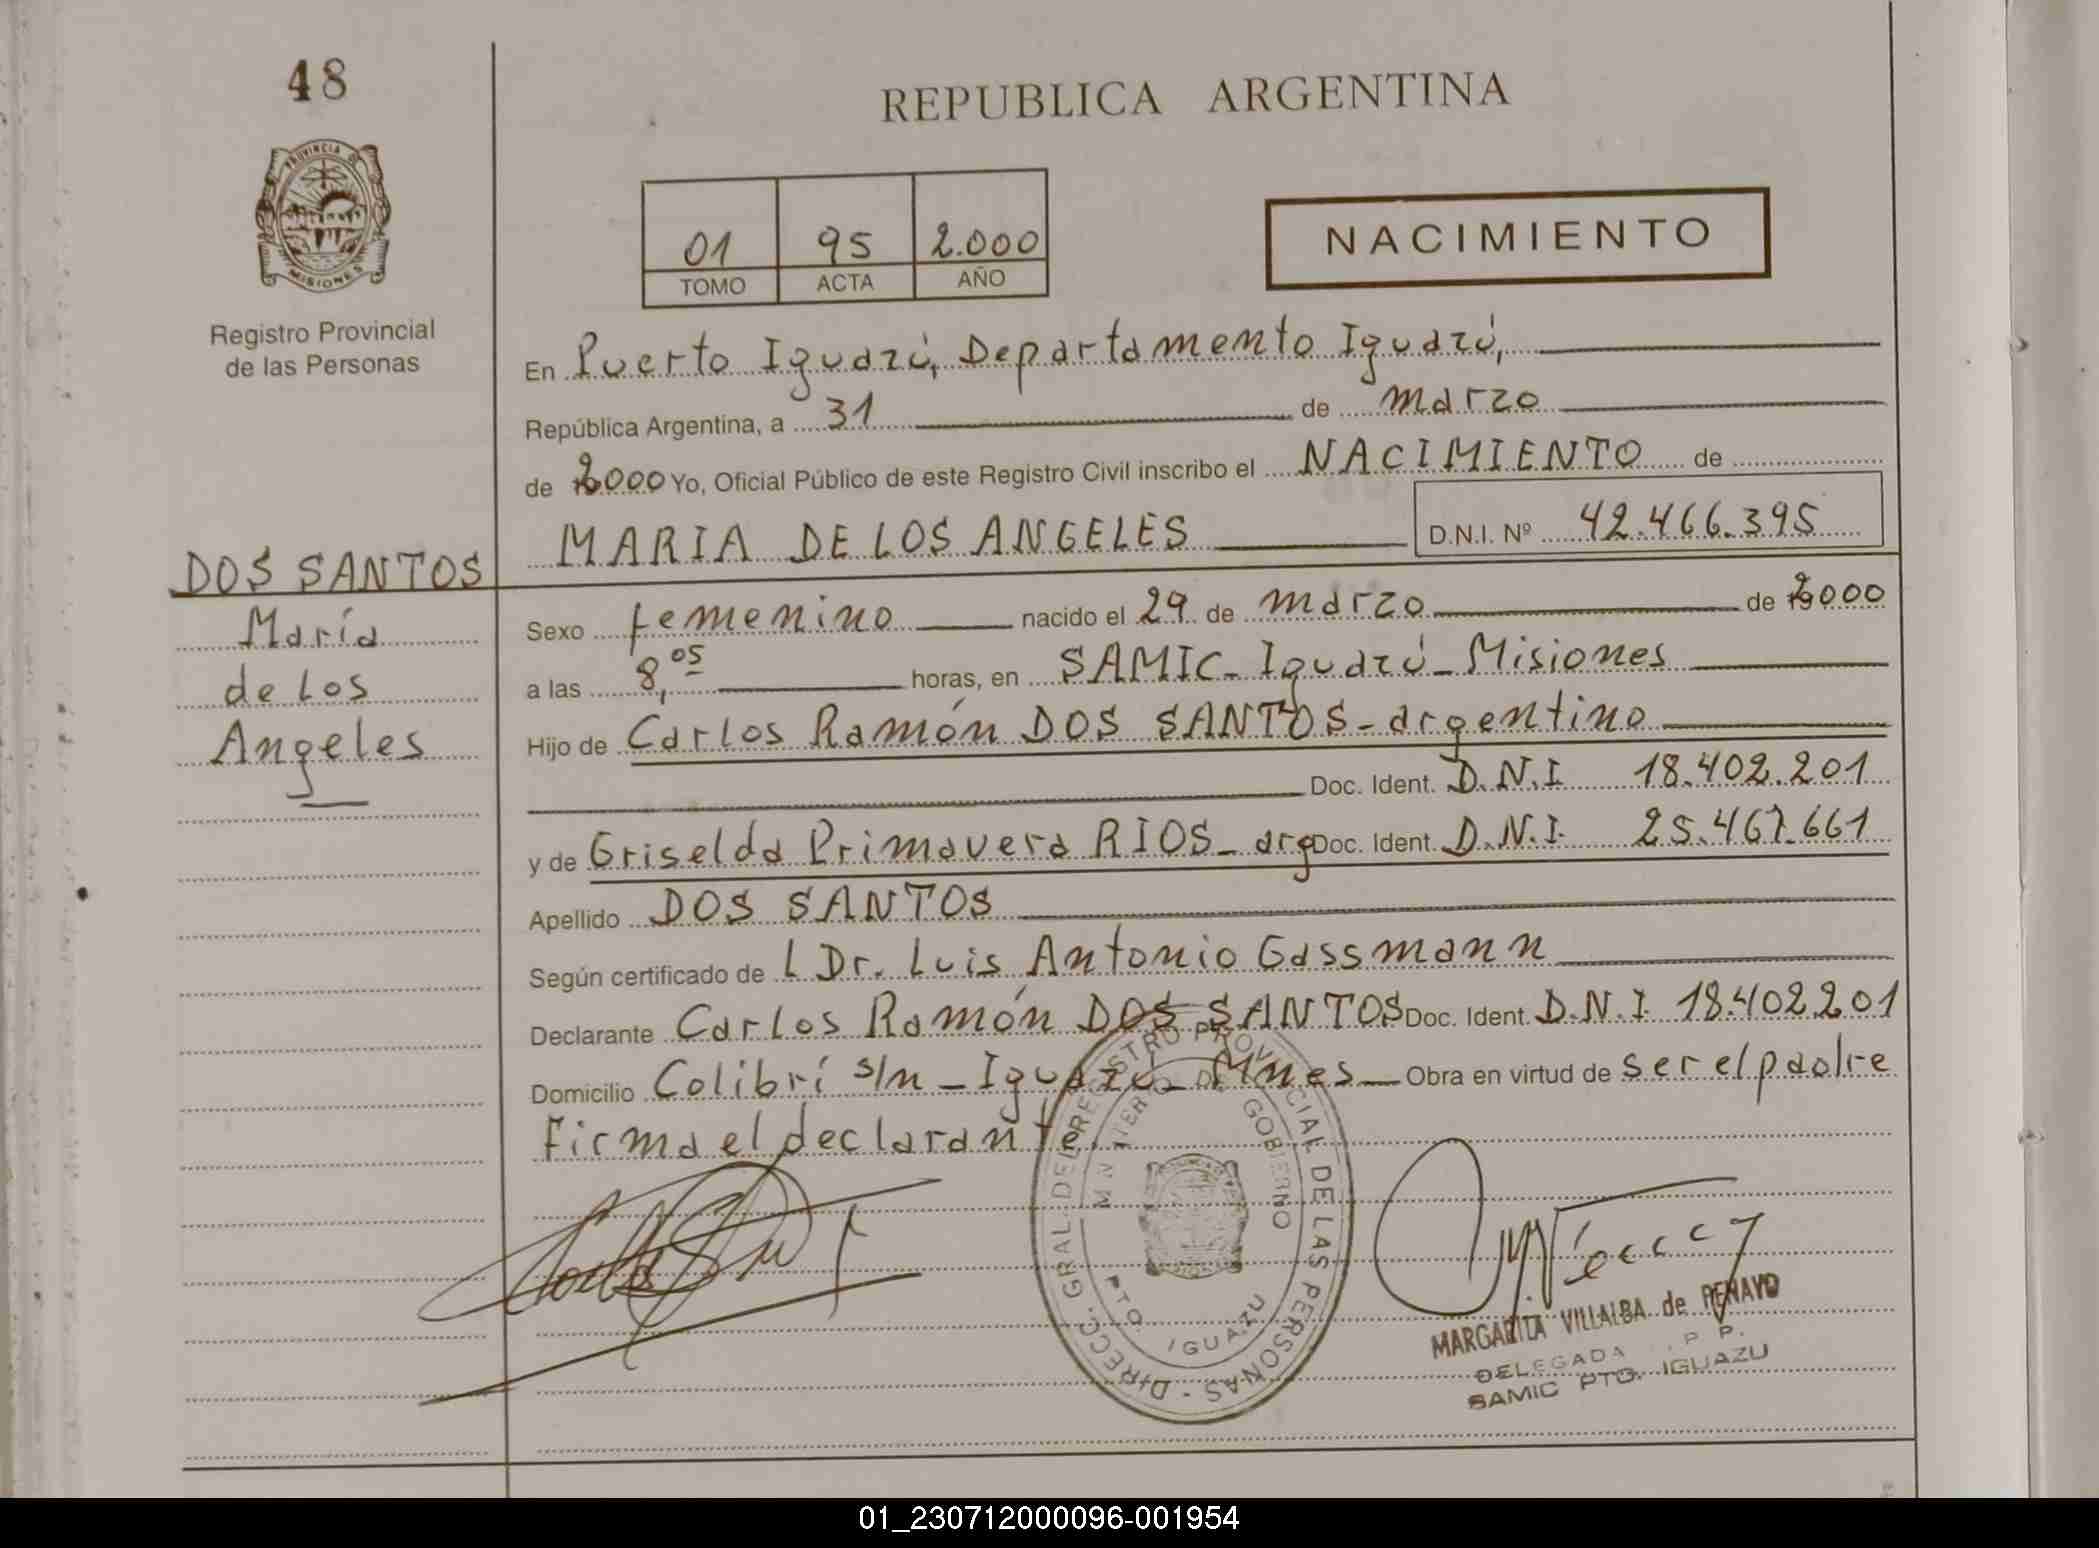 48
PROVINCIA DE
MISIONES
Registro Provincial
de las Personas
REPUBLICA ARGENTINA
01 95 2.000
TOMO ACTA AÑO
NACIMIENTO
En Puerto Iguazú, Departamento Iguazú,
República Argentina, a 31 de marzo
de 2000 Yo, Oficial Público de este Registro Civil inscribo el NACIMIENTO de
MARIA DE LOS ANGELES D.N.I. Nº 42.466.395
DOS SANTOS
María
de los
Angeles
Sexo femenino nacido el 29 de marzo de 2000
a las 8,05 horas, en SAMIC - Iguazú - Misiones
Hijo de Carlos Ramón DOS SANTOS - argentino
Doc. Ident. D.N.I 18.402.201
y de Griselda Primavera RIOS - arg Doc. Ident. D.N.I. 25.467.661
Apellido DOS SANTOS
Según certificado de l Dr. Luis Antonio Gassmann
Declarante Carlos Ramón DOS SANTOS Doc. Ident. D.N.I. 18.402.201
Domicilio Colibrí s/n - Iguazú - Mnes Obra en virtud de ser el padre
Firma el declarante.
DIRECC. GRAL DEL REGISTRO PROVINCIAL DE LAS PERSONAS -
DE GOBIERNO
PTO. IGUAZU
MARGARITA VILLALBA de PENAYO
DELEGADA P. P.
SAMIC PTO. IGUAZU
01_230712000096-001954